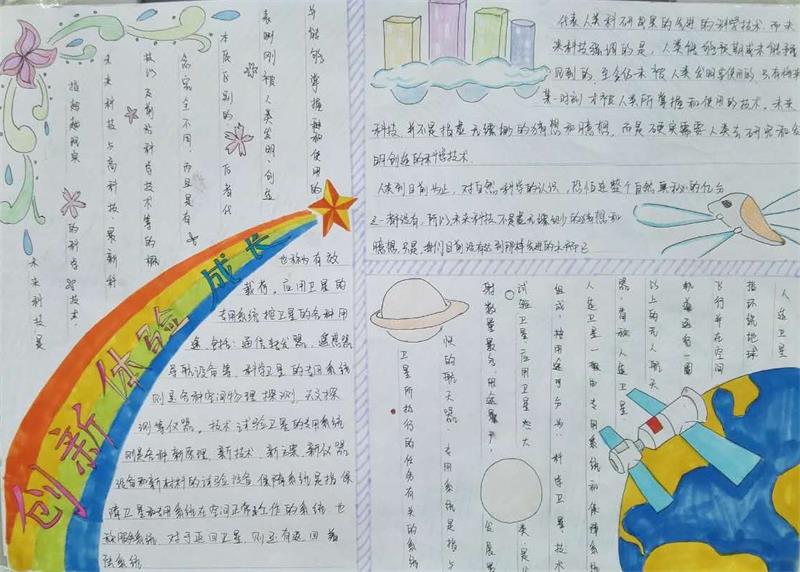 未来科技是
指超越现实的科学技术，
未来科技与高科技、最新科
技以及前沿科学技术等的概
念完全不同，而且是有
本质区别的，后者代
表刚刚被人类发明、创造
并能够掌握和使用的
代表人类科研成果的先进的科学技术．而未
来科技强调的是，人类能够预期或未能预
见到的，完全还未被人类发明与使用的，只有将来
某一时刻才被人类所掌握和使用的技术。未来
科技，并不是指虚无缥缈的猜想和臆想，而是确实需要人类去研究和发
明创造的科学技术．
人类到目前为止，对自然科学的认识，恐怕连整个自然奥秘的亿分
之一都没有．所以未来科技不是虚无缥缈的猜想和
臆想，只是，我们目前没有达到那样先进的水平而已
创新体验 成长
人造卫星
指环绕地球
飞行并在空间
轨道运行一圈
以上的无人航天
器，简称人造卫星
人造卫星一般由专用系统和保障系统
组成，按用途可分为：科学卫星、技术
试验卫星 应用卫星 三大类．是
射数量最多，用途最广，发展最
快的航天器 专用系统是指与
卫星所执行的任务有关的系统
也称为有效
载荷。应用卫星的
专用系统按卫星的各种用
途包括：通信转发器，遥感器
导航设备等，科学卫星的专用系统
则是各种空间物理探测、天文探
测等仪器。技术试验卫星的专用系统
则是各种新原理 新技术、新方案、新仪器
设备和新材料的试验设备．保障系统是指保
障卫星和专用系统在空间正常工作的系统 也
称服务系统．对于返回卫星，则还有返回着
陆系统